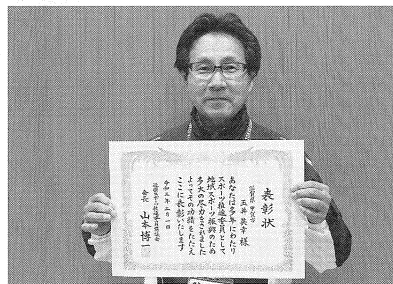 表彰状
玉井 英幸 様
あなたは多年にわたり
スポーツ推進委員として
地域スポーツ振興のため
多大の尽力をされました
よってその功績をたたえ
ここに表彰いたします
会長 山本博一